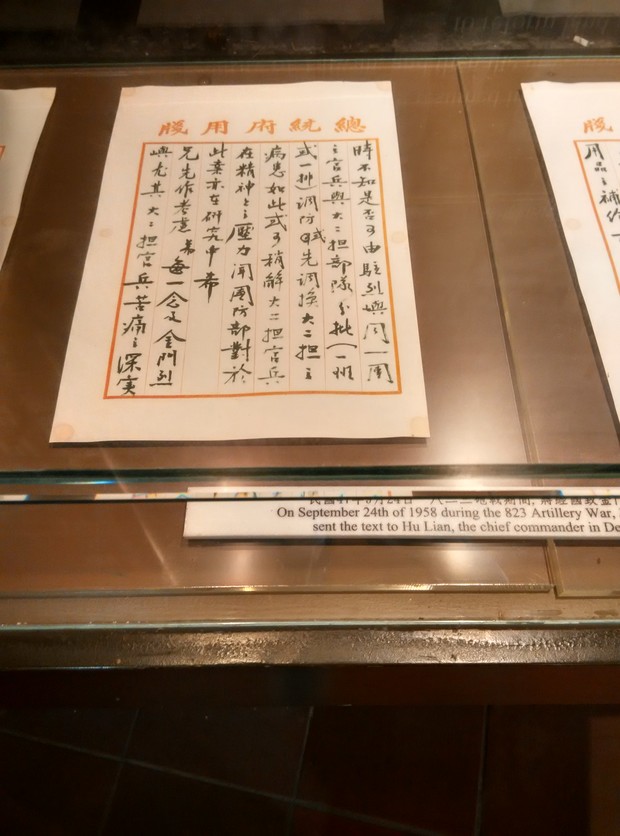 總統府用牋
時不知是否可由駐烈嶼同一團
之官兵與大二担部隊分批(一班
或一排)調防或先調換大二担之
病患如此或可稍解大二担官兵
在精神上之壓力聞國防部對於
此案亦在研究中希
兄先作考慮弟每一念及金門烈
嶼尤其大二担官兵苦痛之深實
牋
用品之補
On September 24th of 1958 during the 823 Artillery War,
sent the text to Hu Lian, the chief commander in De